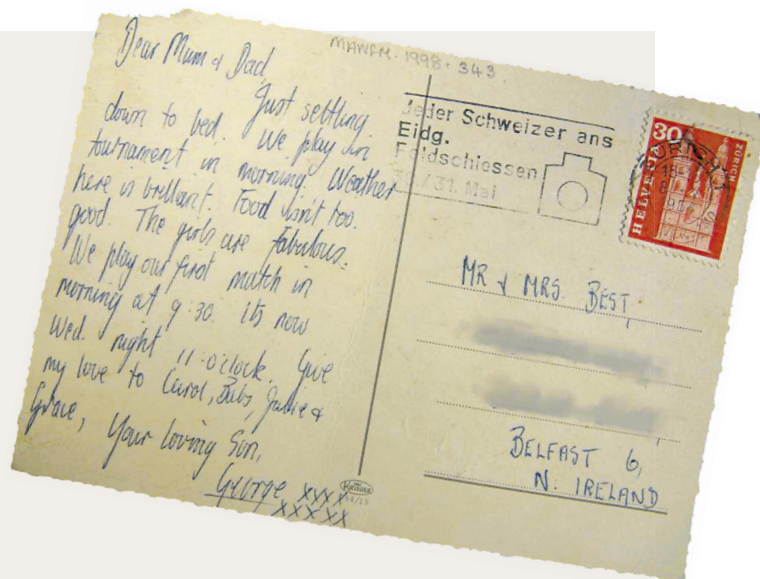 MAWFM. 1998. 343.
Dear Mum & Dad,
Just settling
down to bed. We play in
tournament in morning. Weather
here is brilliant. Food isn't too
good. The girls are fabulous.
We play our first match in
morning at 9.30. its now
Wed. night 11 o'clock. Give
my love to Carol, Babs, Julie &
Grace, Your loving Son,
George xxxx
xxxxx
Jeder Schweizer ans
Eidg.
Feldschiessen
30./31. Mai
30
HELVETIA
ZÜRICH
MR & MRS. BEST,
BELFAST 6,
N. IRELAND